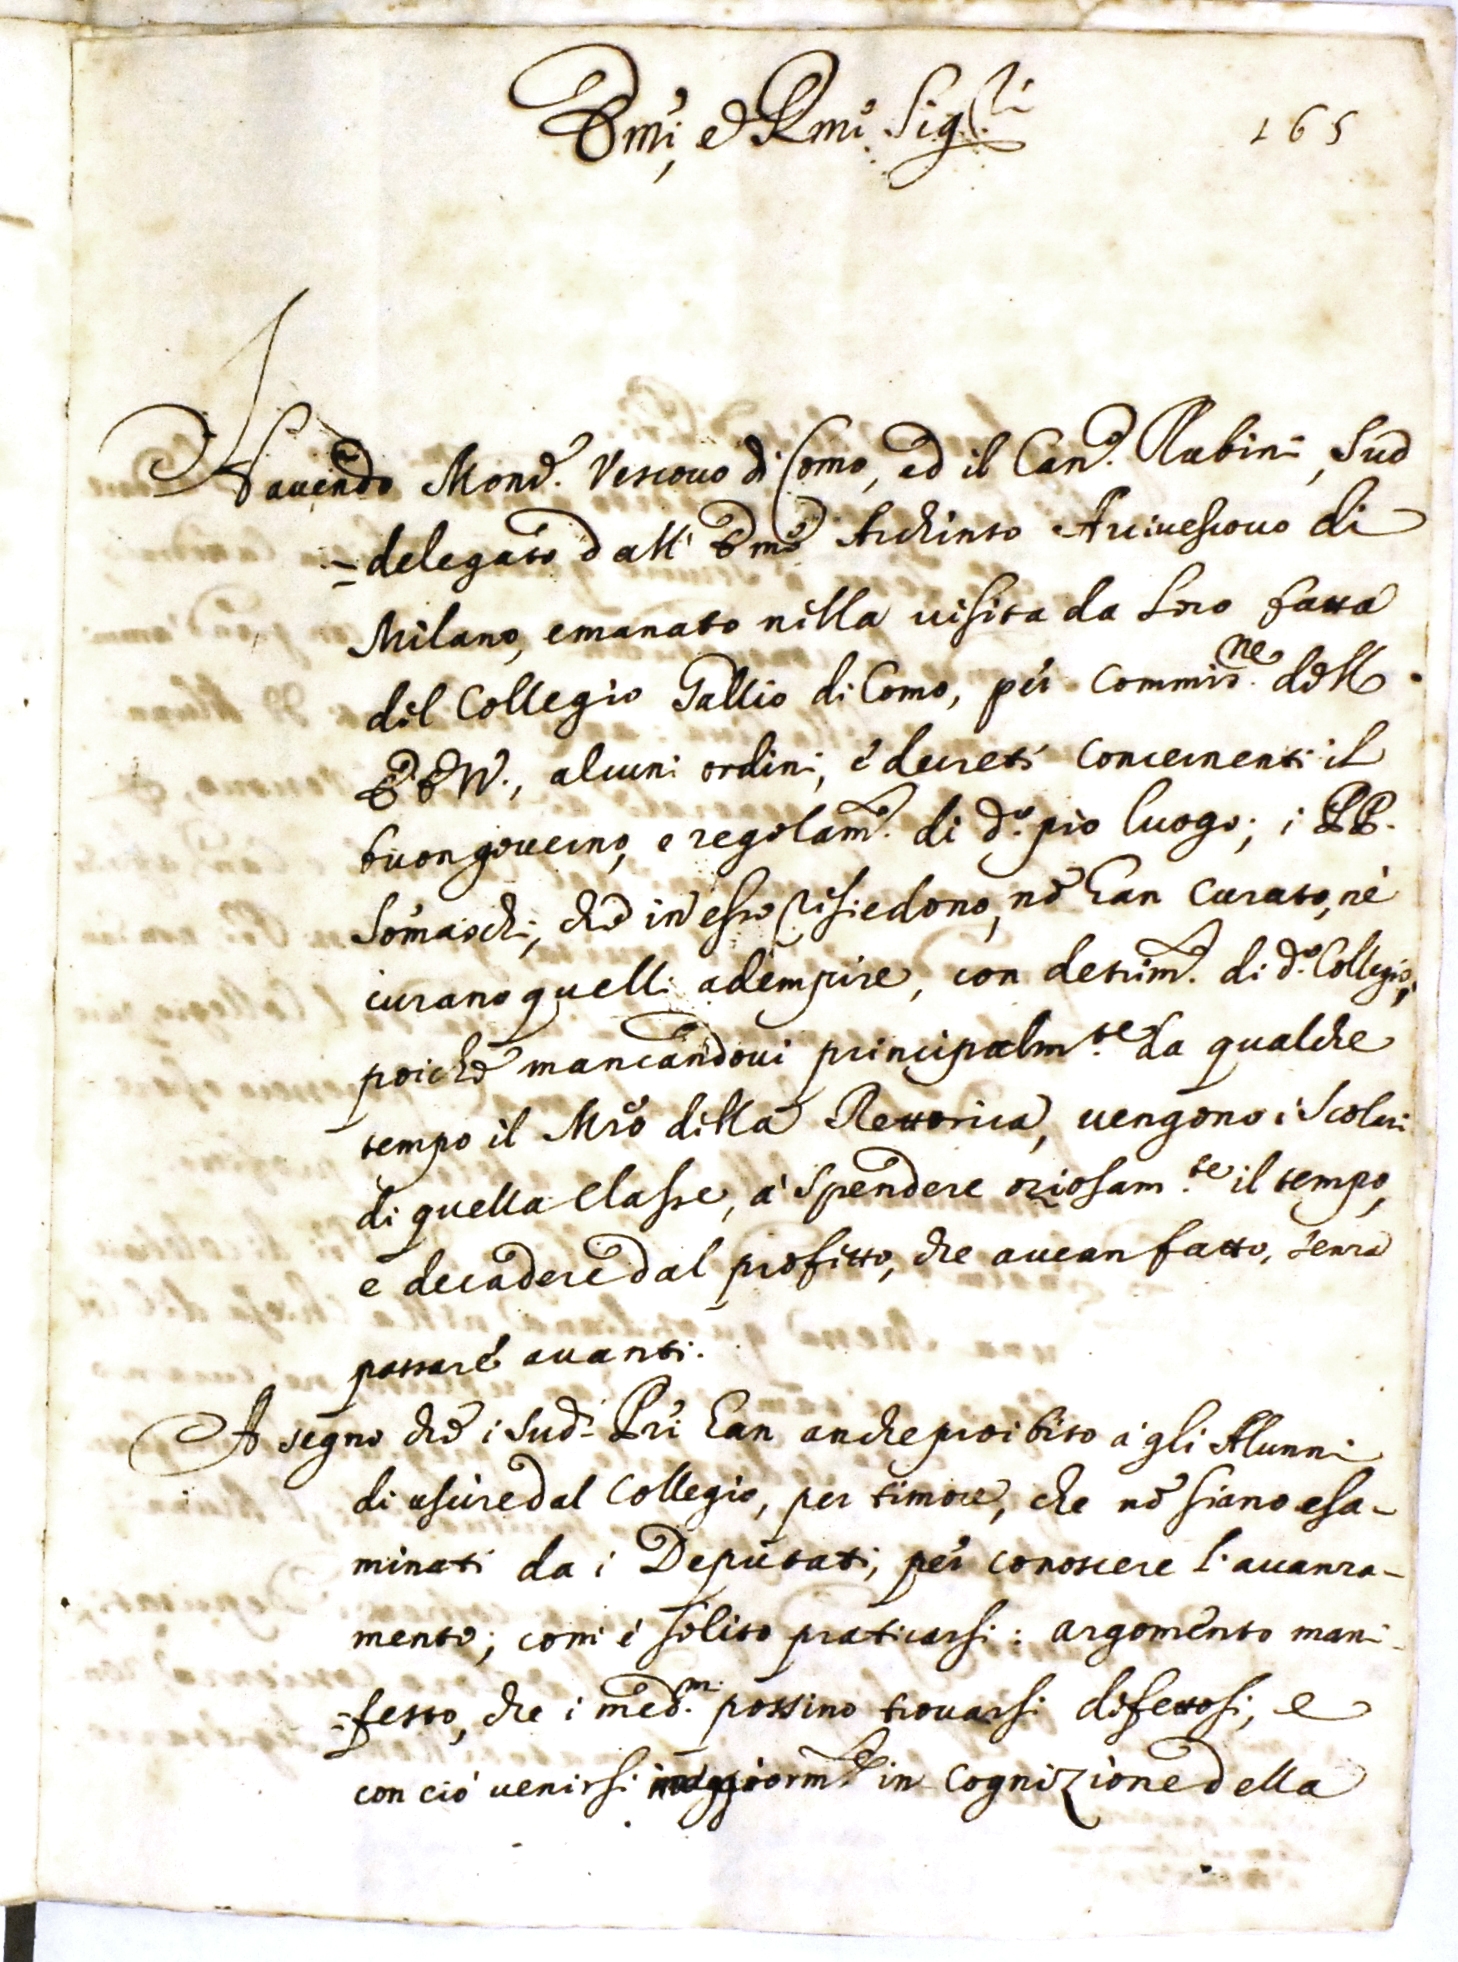 Emi, e Rmi Sigri
165
Havendo Monsr. Vescovo di Como, ed il Canco. Rubini, Sud
=delegato dall' Emo Archinto Arcivescovo di
Milano, emanato nella visita da loro fatta
del Collegio Gallio di Como, per Commisne. dell
EE. VV., alcuni ordini, e decreti concernenti il
buon governo, e regolamto. di do. pio luogo; i PP.
Somaschi, che in esso risiedono, nō han curato, nè
curano quelli adempire, con detrimto. di do. Collegio,
poiche mancandovi principalmte. da qualche
tempo il Mrō della Rettorica, vengono i Scolari
di quella Classe, a' spendere oziosamte. il tempo,
e decadere dal profitto, che avean fatto, senza
passare avanti.
A segno che i sudi. Pri han anche proibito a' gli Alunni
di uscire dal Collegio, per timore, che nō siano esa-
minati da i Deputati, per conoscere l'avanza-
mento; com' è solito praticarsi: argomento mani-
=festo, che i medmi. possino trovarsi difettosi, e
con ciò venirsi maggiormte in cognizione della